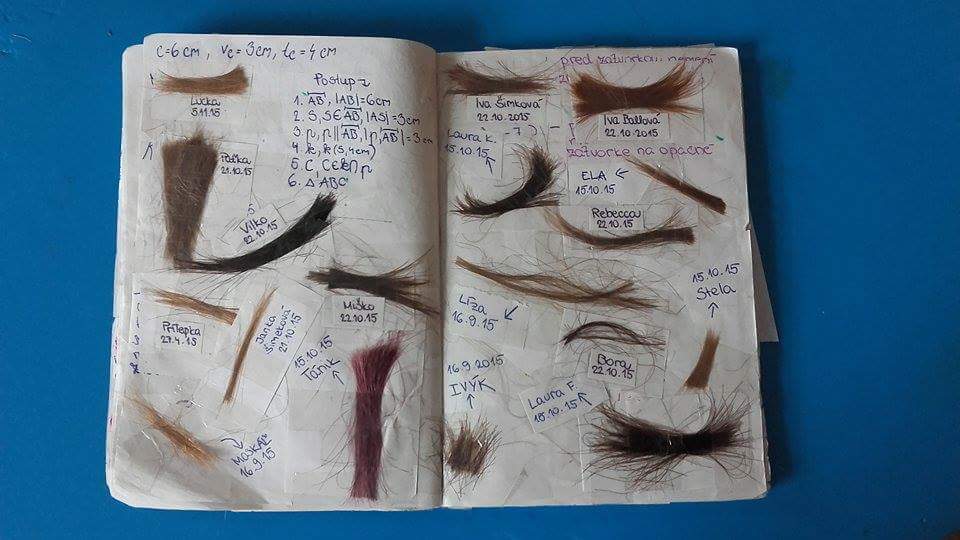 c=6cm, vc = 3cm, tc = 4cm
Postup
1. AB, |AB|=6cm
2. S, S∈AB, |AS|=3cm
3. p, p||AB, |p,AB|=3cm
4. k, k(S,4cm)
5. C, C∈k∩p
6. △ABC
Lucka
5.11.15
21.10.15
Vilko
22.10.15
Miško
22.10.15
Prilepka
27.4.15
Janka
Šimeková
21.10.15
15.10.15
Tánik
16.9.15
pred zátvorkou
Iva Šimková
22.10.2015
Iva Ballová
22.10.2015
zátvorke na opačné
Laura K.
15.10.15
ELA
15.10.15
Rebecca
22.10.15
15.10.15
Stela
Líza
16.9.15
Bora
22.10.15
16.9.2015
IVYK
Laura F.
15.10.15